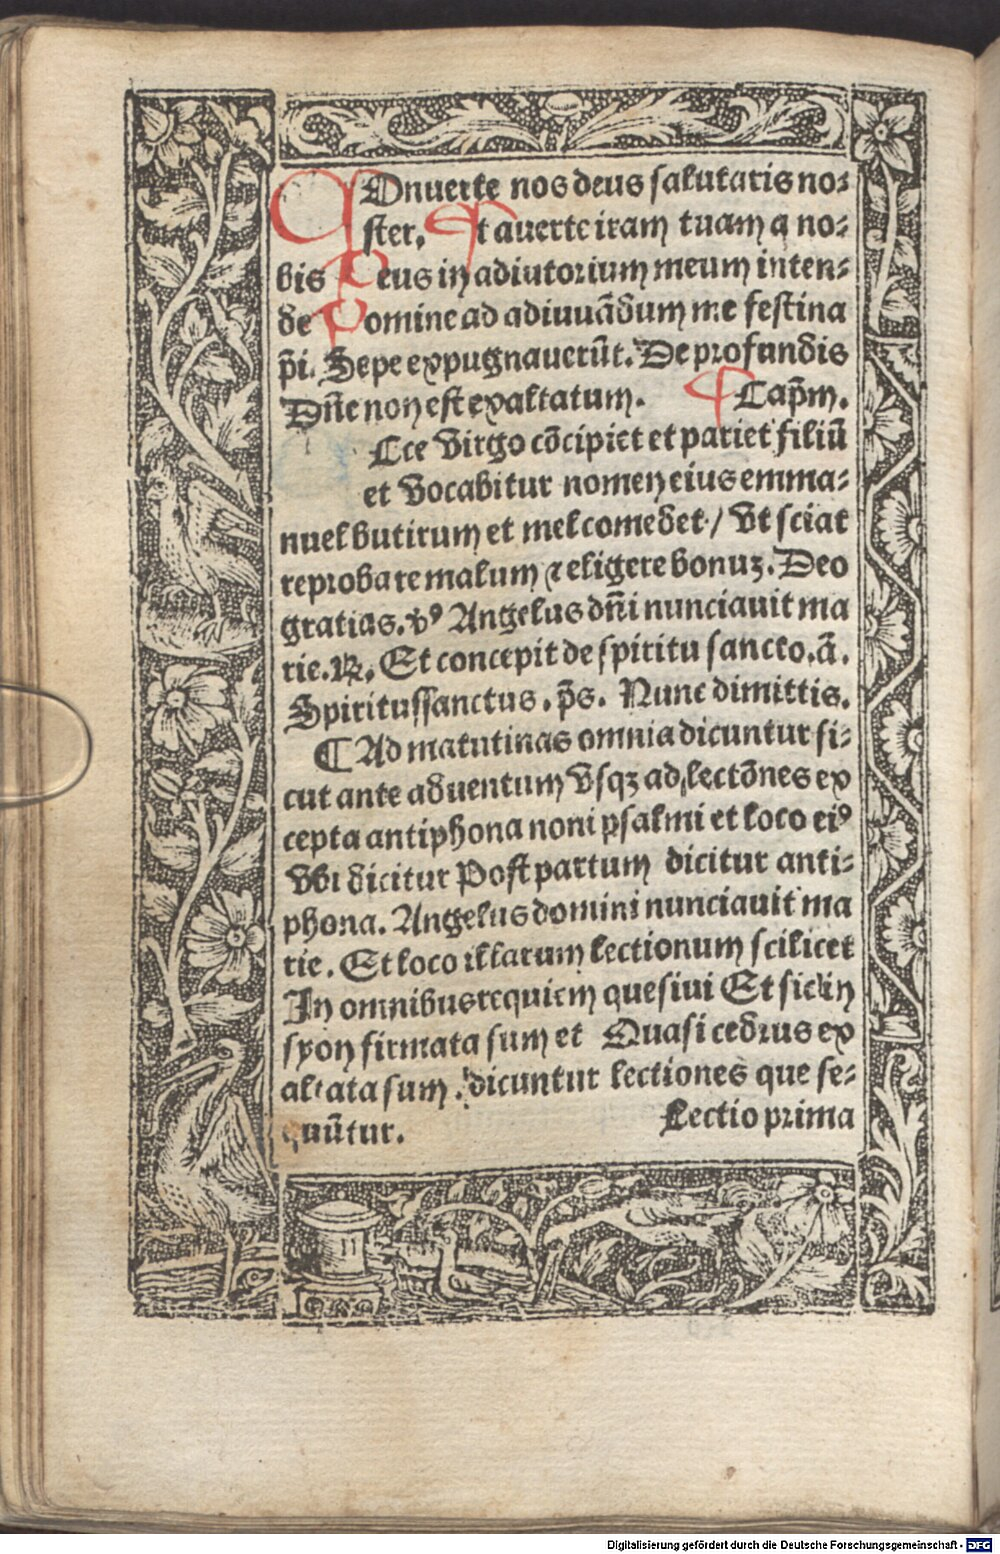 COnuerte nos deus salutaris no⸗
ster, Et auerte iram tuam a no⸗
bis Deus in adiutorium meum inten⸗
de Domine ad adiuuādum me festina
p̄i. Sepe expugnauerūt. De profundis
Dn̄e non est exaltatum. ¶ Cap̄m.
Cce virgo cōcipiet et pariet filiū
et vocabitur nomen eius emma⸗
nuel butirum et mel comedet / vt sciat
reprobare malum ⁊ eligere bonuꝫ. Deo
gratias. v̓ꝰ Angelus dn̄i nunciauit ma
rie. ꝶ. Et concepit de spiritu sancto. ā.
Spiritussanctus. p̄s. Nunc dimittis.
¶ Ad matutinas omnia dicuntur si⸗
cut ante aduentum vsqꝫ ad lectōnes ex
cepta antiphona noni psalmi et loco eiꝰ
vbi dicitur Post partum dicitur anti⸗
phona. Angelus domini nunciauit ma
rie. Et loco illarum lectionum scilicet
In omnibus requiem quesiui Et sic in
syon firmata sum et Quasi cedrus ex
altata sum. dicuntur lectiones que se⸗
quūtur. Lectio prima
Digitalisierung gefördert durch die Deutsche Forschungsgemeinschaft - DFG